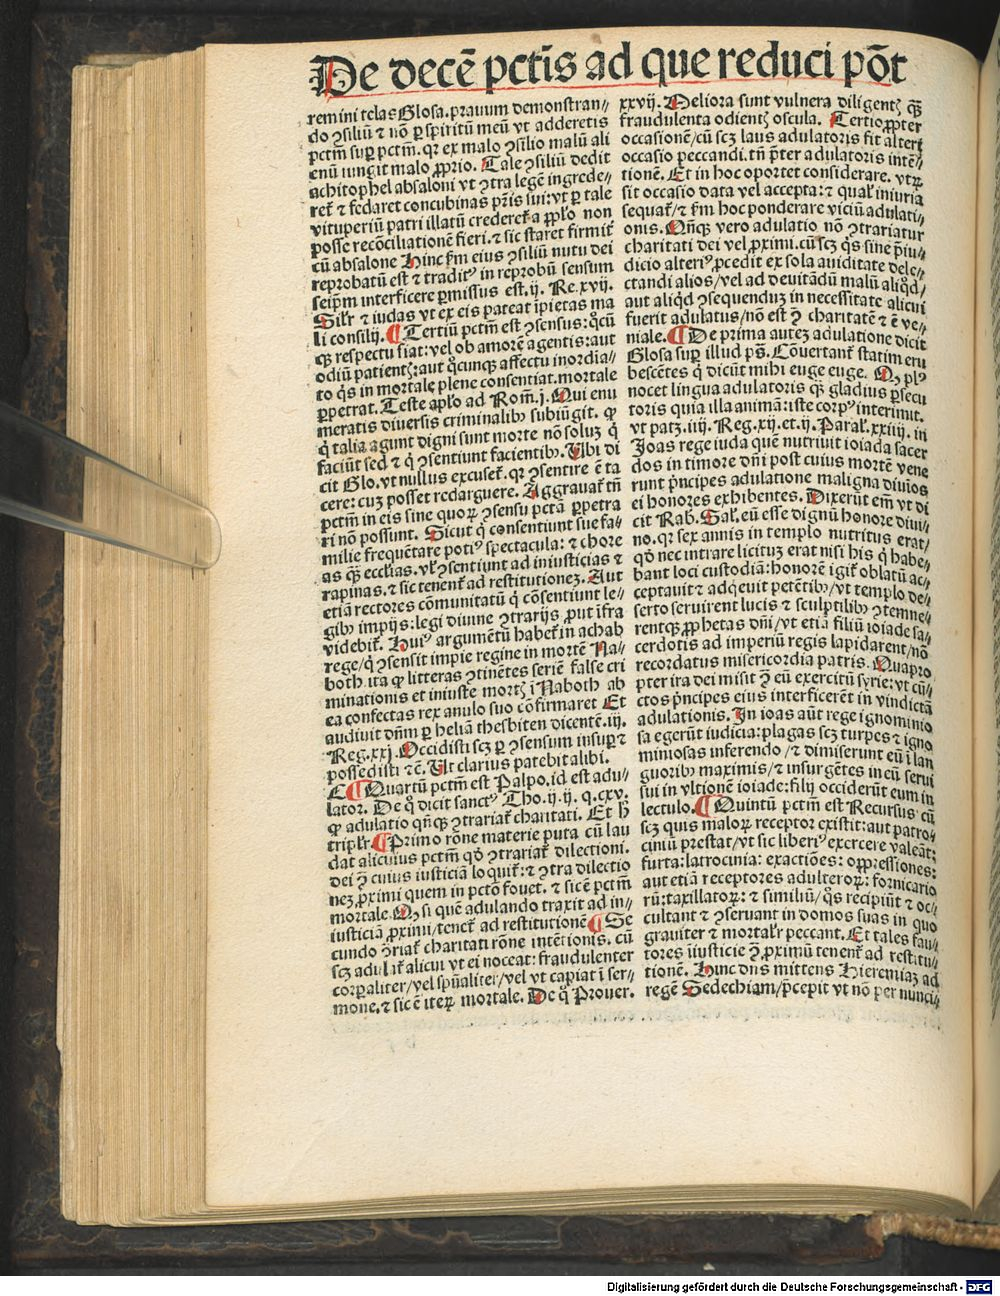 De decē pctīs ad que reduci pōt
rem ini telas Glosa. prauum demonstran⸗
do ꝯsiliū ⁊ nō ꝑ spiritū meū vt adderetis
pctm̄ suꝑ pctm̄. qꝛ ex malo ꝯsilio malū ali
enū iungit malo ꝓprio. Tale ꝯsiliū dedit
achitophel absaloni vt ꝯtra legē ingrede⸗
ret̄ ⁊ fedaret concubinas pr̄is sui: vt ꝑ tale
vituperiū patri illatū crederet̄ a pplo non
posse recōciliationē fieri. ⁊ sic staret firmit̄
cū absalone Hinc ẜm eius ꝯsiliū nutu dei
reprobatū est ⁊ tradit⁹ in reprobū sensum
seipm interficere ꝑmissus est. ij. Re. xvij.
Silr̄ ⁊ iudas vt ex eis pateat īpietas ma
li consilij. ¶ Tertiū pctm̄ est ꝯsensus: qͦcū
qꝫ respectu fiat: vel ob amorē agentis: aut
odiū patientꝭ: aut qͦcunqꝫ affectu inordia⸗
to qͥs in mortale plene consentiat. mortale
ꝑpetrat. Teste aplo ad Rom̄. j. Qui enu
meratis diuersis criminalibꝰ subiūgit. ꝙ
qͥ talia agunt digni sunt morte nō soluꝫ qͥ
faciūt sed ⁊ qͥ ꝯsentiunt facientibꝰ. Vbi di
cit Glo. vt nullus excuset̄. qꝛ ꝯsentire ē ta
cere: cuꝫ posset redarguere. Aggrauat̄ tn̄
pctm̄ in eis sine quoꝝ ꝯsensu pctā ꝑpetra
ri nō possunt. Sicut qͥ consentiunt sue fa⸗
milie frequētare poti⁹ spectacula: ⁊ chore
as qꝫ eccl̄ias. vl̓ ꝯsentiunt ad iniusticias ⁊
rapinas. ⁊ sic tenent̄ ad restitutioneꝫ. Aut
etiā rectores cōmunitatū qͥ cōsentiunt le⸗
gibꝰ impijs: legi diuine ꝯtrarijs ꝓut īfra
videbit̄. Hui⁹ argumētū habet̄ in achab
rege/ qͥ ꝯsensit impie regine in mortē Na⸗
both. ita ꝙ litteras ꝯtinētes seriē false cri
minationis et iniuste mortꝭ ī Naboth ab
ea confectas rex anulo suo cōfirmaret Et
audiuit dn̄m ꝑ heliā thesbiten dicentē. iij.
Reg. xxj. Occidisti scꝫ ꝑ ꝯsensum insuꝑ ⁊
possedisti ⁊cͣ. Ut clarius patebit alibi.
¶ Quartū pctm̄ est Palpo. id est adu⸗
lator. De qͦ dicit sanct⁹ Tho. ij. ij. q. cxv.
ꝙ adulatio qn̄qꝫ ꝯtrariat̄ charitati. Et h̓
triplr̄. ¶ Primo rōne materie puta cū lau
dat alicuius pctm̄ qd̓ ꝯtrariat̄ dilectioni.
dei ꝯ̄ cuius iusticiā loquit̄: ⁊ ꝯtra dilectio
neꝫ ꝓximi quem in pctō fouet. ⁊ sic ē pctm̄
mortale Qꝫ si quē adulando traxit ad in⸗
iusticiā ꝓximi/ tenet̄ ad restitutionē ¶ Se
cundo ꝯ̄riat̄ charitati rōne intētionis. cū
scꝫ adulat̄ alicui vt ei noceat: fraudulenter
corꝑaliter/ vel spūaliter/ vel vt capiat ī ser⸗
mone. ⁊ sic ē iteꝝ mortale. De qͦ Prouer.
xxvij. Meliora sunt vulnera diligentꝭ qꝫ
fraudulenta odientꝭ oscula. Tertio ꝓpter
occasionē/ cū scꝫ laus adulatoris fit alteri
occasio peccandi. tn̄ p̄ter adulatoris intē⸗
tionē. Et in hoc oportet considerare. vtꝝ
sit occasio data vel accepta: ⁊ qual̓ iniuria
sequat̄/ ⁊ ẜm hoc ponderare viciū adulati⸗
onis. Qn̄qꝫ vero adulatio nō ꝯtrariatur
charitati dei vel ꝓximi. cū scꝫ qͥs sine p̄iu⸗
dicio alteri⁹ ꝓcedit ex sola auiditate dele⸗
ctandi alios/ vel ad deuitādū malū aliqͥd⸗
aut aliqͥd ꝯsequenduꝫ in necessitate alicui
fuerit adulatus/ nō est ꝯ̄ charitatē ⁊ ē ve⸗
niale. ¶ De prima auteꝫ adulatione dicit
Glosa suꝑ illud ps̄. Cōuertant̄ statim eru
bescētes qͥ dicūt mihi euge euge. Qꝫ pl⁹
nocet lingua adulatoris qꝫ gladius ꝑsecu
toris quia illa animā: iste corp⁹ interimit.
vt patꝫ. iiij. Reg. xij. et. ij. Paral̓. xxiiij. in
Joas rege iuda quē nutriuit ioiada sacer
dos in timore dn̄i post cuius mortē vene
runt pͥncipes adulatione maligna diuīos
ei honores exhibentes. Dixerūt em̄ vt di
cit Rab. Sal̓. eū esse dignū honore diui⸗
no. qꝛ sex annis in templo nutritus erat⸗
qd̓ nec intrare licituꝫ erat nisi his qͥ habe⸗
bant loci custodiā: honorē igit̄ oblatū ac⸗
ceptauit ⁊ adqeuit petētibꝰ/ vt templo de⸗
serto seruirent lucis ⁊ sculptilibꝰ ꝯtemne⸗
rentqꝫ ꝓphetas dn̄i/ vt etiā filiū ioiade sa⸗
cerdotis ad imperiū regis lapidarent/ nō
recordatus misericordia patris. Quapro
pter ira dei misit ꝯ̄ eū exercitū syrie: vt cū⸗
ctos pͥncipes eius interficerēt in vindictā
adulationis. In ioas aūt rege ignominio
sa egerūt iudicia: plagas scꝫ turpes ⁊ igno
miniosas inferendo/ ⁊ dimiserunt eū ī lan
guoribꝰ maximis/ ⁊ insurgētes in eū serui
sui in vltionē ioiade: filij occiderūt eum in
lectulo. ¶ Quintū pctm̄ est Recursus cū
scꝫ quis maloꝝ receptor existit: aut patro⸗
ciniū prestat/ vt sic liberi⁹ exercere valeāt:
furta: latrocinia: exactiōes: oppressiones:
aut etiā receptores adulteroꝝ: fornicario
rū: taxillatoꝝ: ⁊ similiū/ qͦs recipiūt ⁊ oc⸗
cultant ⁊ ꝯseruant in domos suas in quo
grauiter ⁊ mortalr̄ peccant. Et tales fau⸗
tores iniusticie ꝯ̄ ꝓximū tenent̄ ad restitu⸗
tionē. Hinc dn̄s mittens Hieremiaꝫ ad
regē Sedechiam/ p̄cepit vt nō per nunci⸗
Digitalisierung gefördert durch die Deutsche Forschungsgemeinschaft - DFG